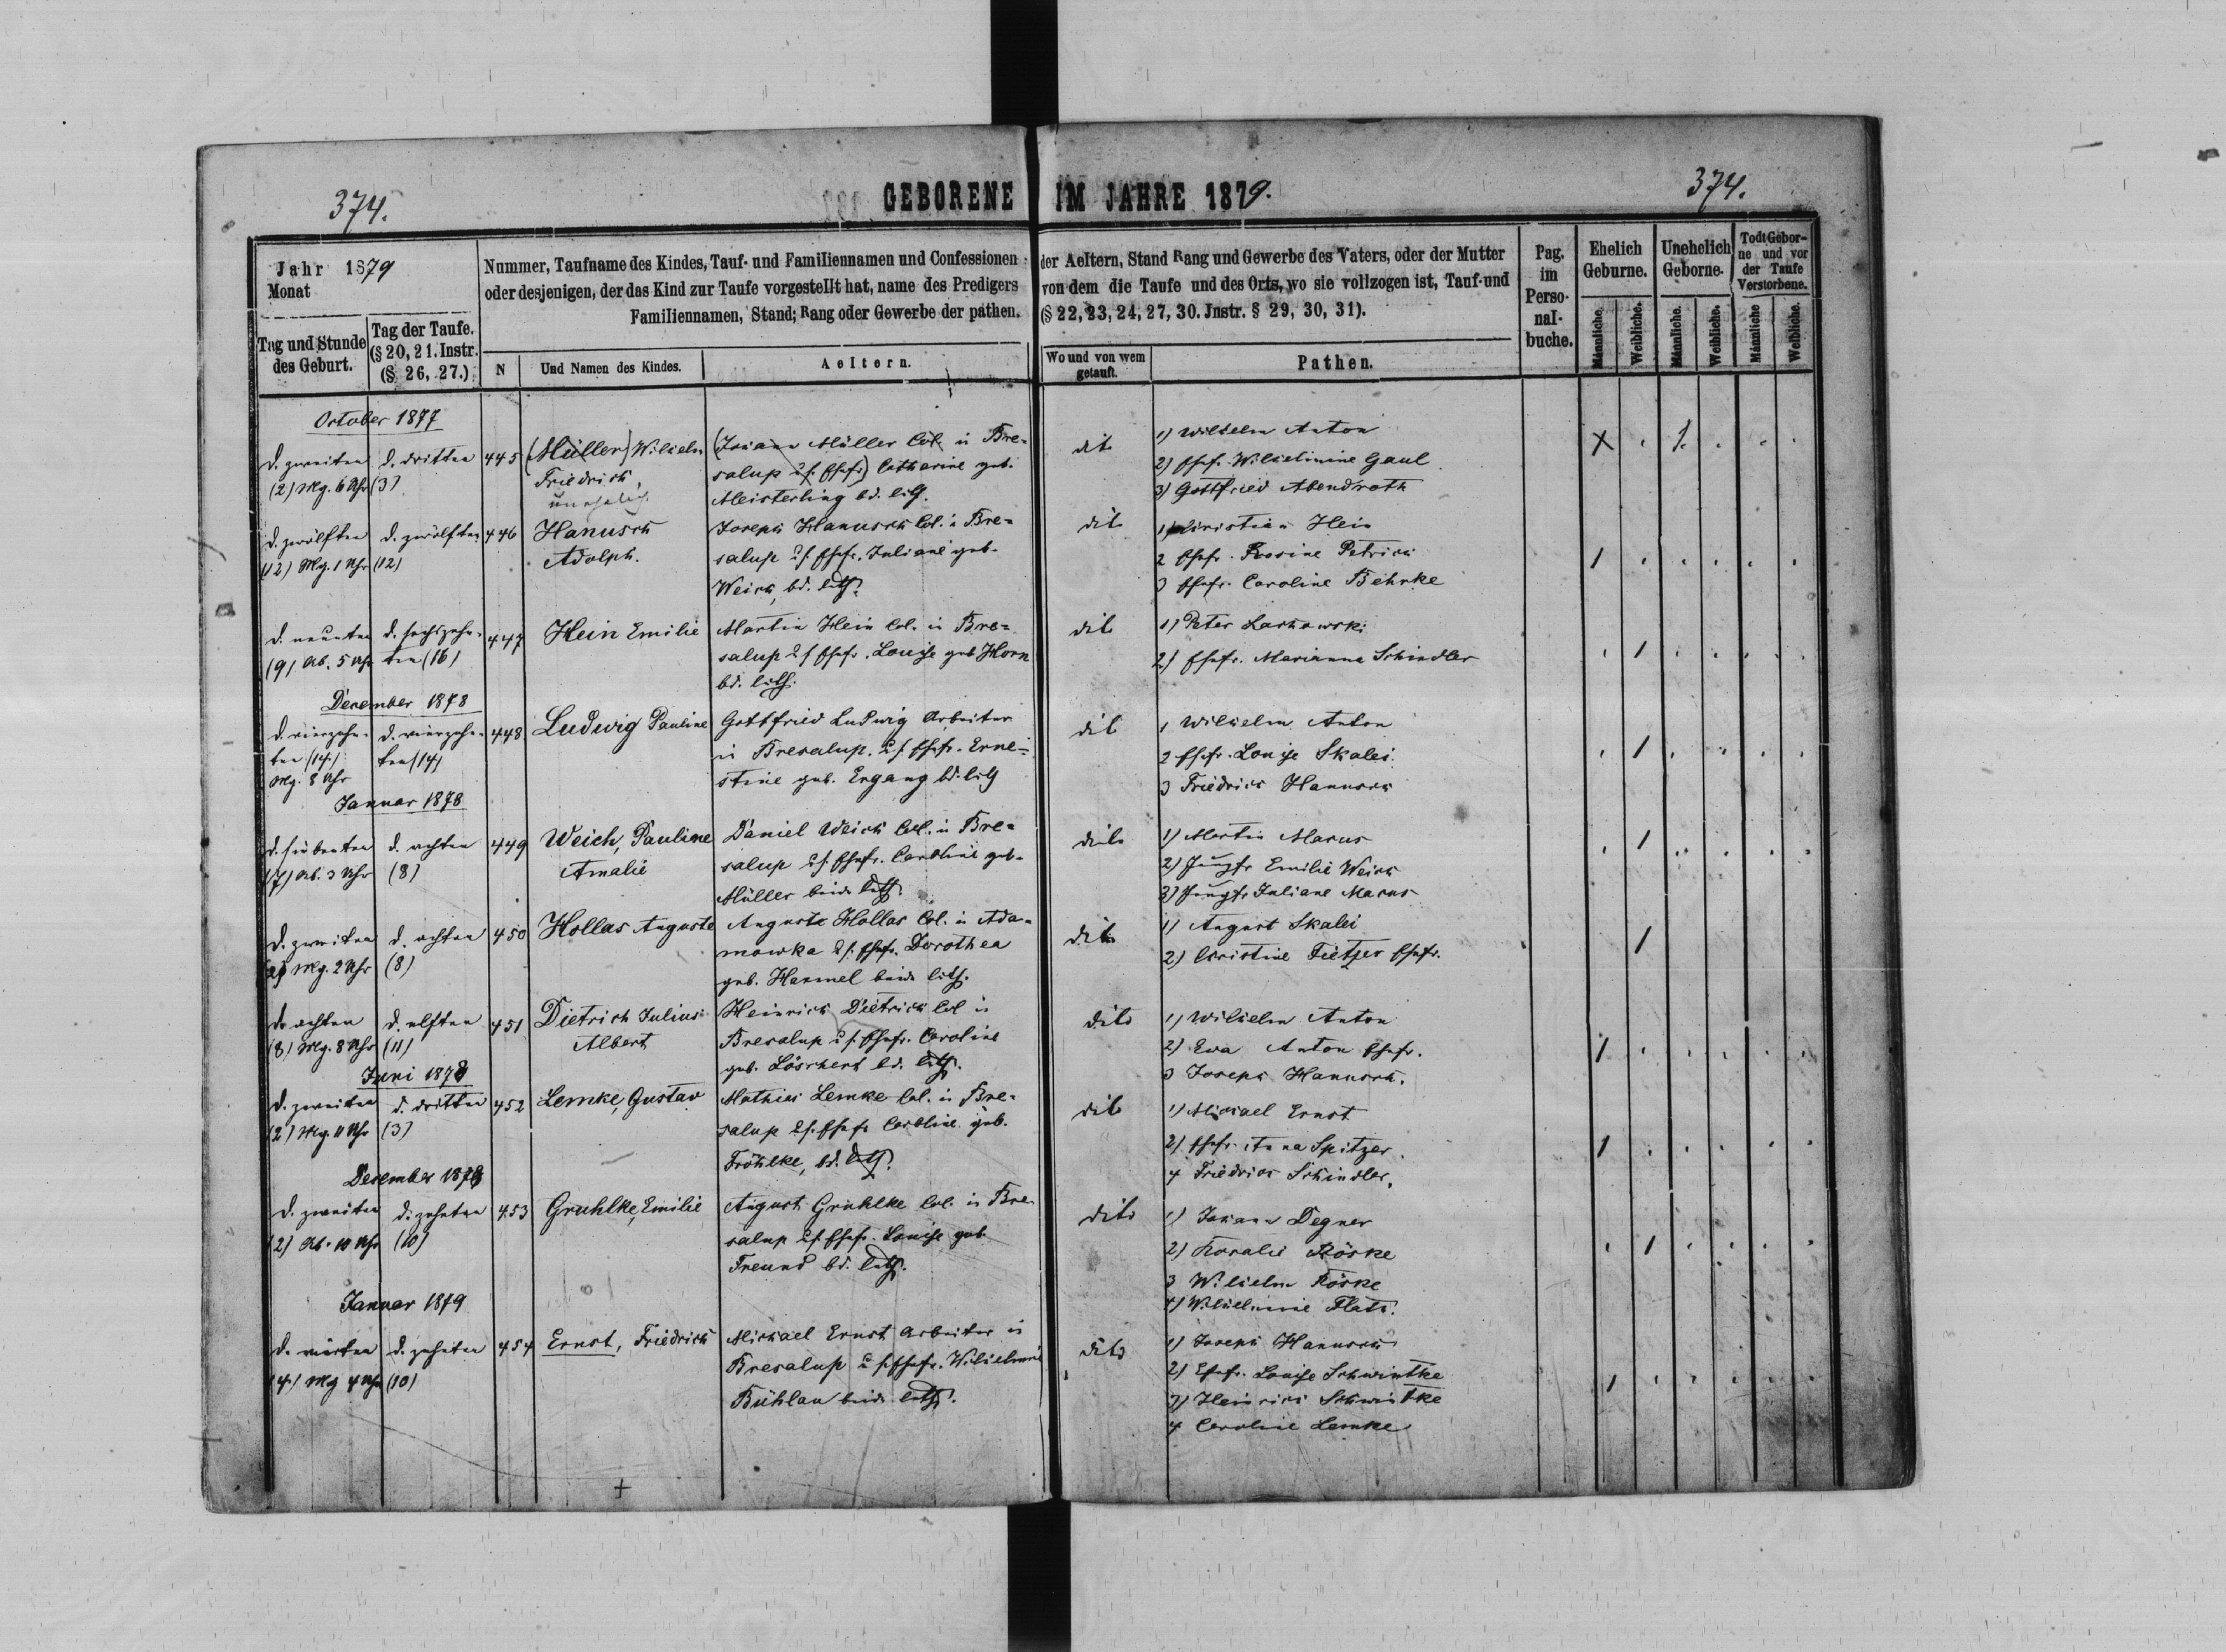 374.
GEBORENE IM JAHRE 1879.
374.
Jahr 1879
Monat
Tag und Stunde des Geburt.
Tag der Taufe. (§ 20, 21. Instr. (§ 26, 27.)
Nummer, Taufname des Kindes, Tauf- und Familiennamen und Confessionen der Aeltern, Stand Rang und Gewerbe des Vaters, oder der Mutter
oder desjenigen, der das Kind zur Taufe vorgestellt hat, name des Predigers von dem die Taufe und des Orts, wo sie vollzogen ist, Tauf-und
Familiennamen, Stand; Rang oder Gewerbe der pathen. (§ 22, 23, 24, 27, 30. Jnstr. § 29, 30, 31).
N
Und Namen des Kindes.
Aeltern.
Wo und von wem getauft.
Pathen.
Pag. im Perso-nal-buche.
Ehelich Geburne.
Unehelich Geborne.
Todt Gebor-ne und vor der Taufe Verstorbene.
Männliche.
Weibliche.
Männliche.
Weibliche.
Männliche
Weibliche.
October 1877
d. zweiten
(2) Mg. 6 Uhr
d. dritten
(3)
445
(Müller) Wilhelm
Friedrich,
unehelich
(Johann Müller Col. in Bre-
salup u s. Ehefr.) Catharine geb.
Meisterling bd. luth.
dito
1) Wilhelm Anton
2) Ehefr. Wilhelmine Gaul
3) Gottfried Abendroth
d. zwölften
(12) Mg. 1 Uhr
d. zwölften
(12)
446
Hanusch
Adolph.
Joseph Hanusch Col. in Bre-
salup u s. Ehefr. Juliane geb.
Weich, bd. luth.
dito
1) Christian Hein
2 Ehefr. Rosine Petrich
3 Ehefr. Caroline Behnke
d. neunten
(9) Ab. 5 Uhr
d. sechszehn-
ten (16)
447
Hein Emilie
Martin Hein Col. in Bre-
salup u s Ehefr. Louise geb Horn
bd. luth.
dito
1) Peter Laskowski
2) Ehefr. Marianna Schindler
December 1878
d. vierzehn-
ten (14)
Mg. 8 Uhr
d. vierzehn-
ten (14)
448
Ludwig Pauline
Gottfried Ludwig Arbeiter
in Bresalup. u s Ehefr. Erne-
stine geb. Ergang bd. luth
dito
1 Wilhelm Anton
2 Ehefr. Louise Skalei
3 Friedrich Hanusch
Januar 1878
d. siebenten
(7) Ab. 3 Uhr
d. achten
(8)
449
Weich, Pauline
Amalie
Daniel Weich Col. in Bre-
salup u s. Ehefr. Caroline geb.
Müller beide luth.
dito
1) Martin Marks
2) Jungfr Emilie Weich
3) Jungfr Juliane Marks
d. zweiten
(2) Mg. 2 Uhr
d. achten
(8)
450
Hollas Auguste
Auguste Hollas Col. in Ada-
mowka u s. Ehefr. Dorothea
geb. Hammel beide luth.
dito
1) August Skalei
2) Christine Tietzer Ehefr.
d. achten
(8) Mg. 8 Uhr
d. elften
(11)
451
Dietrich Julius
Albert
Heinrich Dietrich Col in
Bresalup u s. Ehefr. Caroline
geb. Löschert bd. luth.
dito
1) Wilhelm Anton
2) Eva Anton Ehefr.
3 Joseph Hanusch.
Juni 1878
d. zweiten
(2) Mg. 11 Uhr
d. dritten
(3)
452
Lemke, Gustav
Mathias Lemke Col. in Bre-
salup u s. Ehefr Caroline geb.
Fröhlke, bd. luth.
dito
1) Michael Ernst
2) Ehefr. Anna Spitzer.
4 Friedrich Schindler.
Desember 1878
d. zweiten
(2) Ab. 10 Uhr
d. zehnten
(10)
453
Gruhlke, Emilie
August Gruhlke Col. in Bre-
salup u s. Ehefr. Louise geb.
Freund bd. luth.
dito
1) Johann Degner
2) Rosalie Röske
3 Wilhelm Röske
4) Wilhelmine Flath.
Januar 1879
d. vierten
(4) Mg 4 Uhr
d. zehnten
(10)
454
Ernst, Friedrich
Michael Ernst Arbeiter in
Bresalup u s. Ehefr. Wilhelmine
Bühlau beide luth.
dito
1) Joseph Hanusch
2) Ehefr. Louise Schwintke
3) Heinrich Schwintke
4 Caroline Lemke